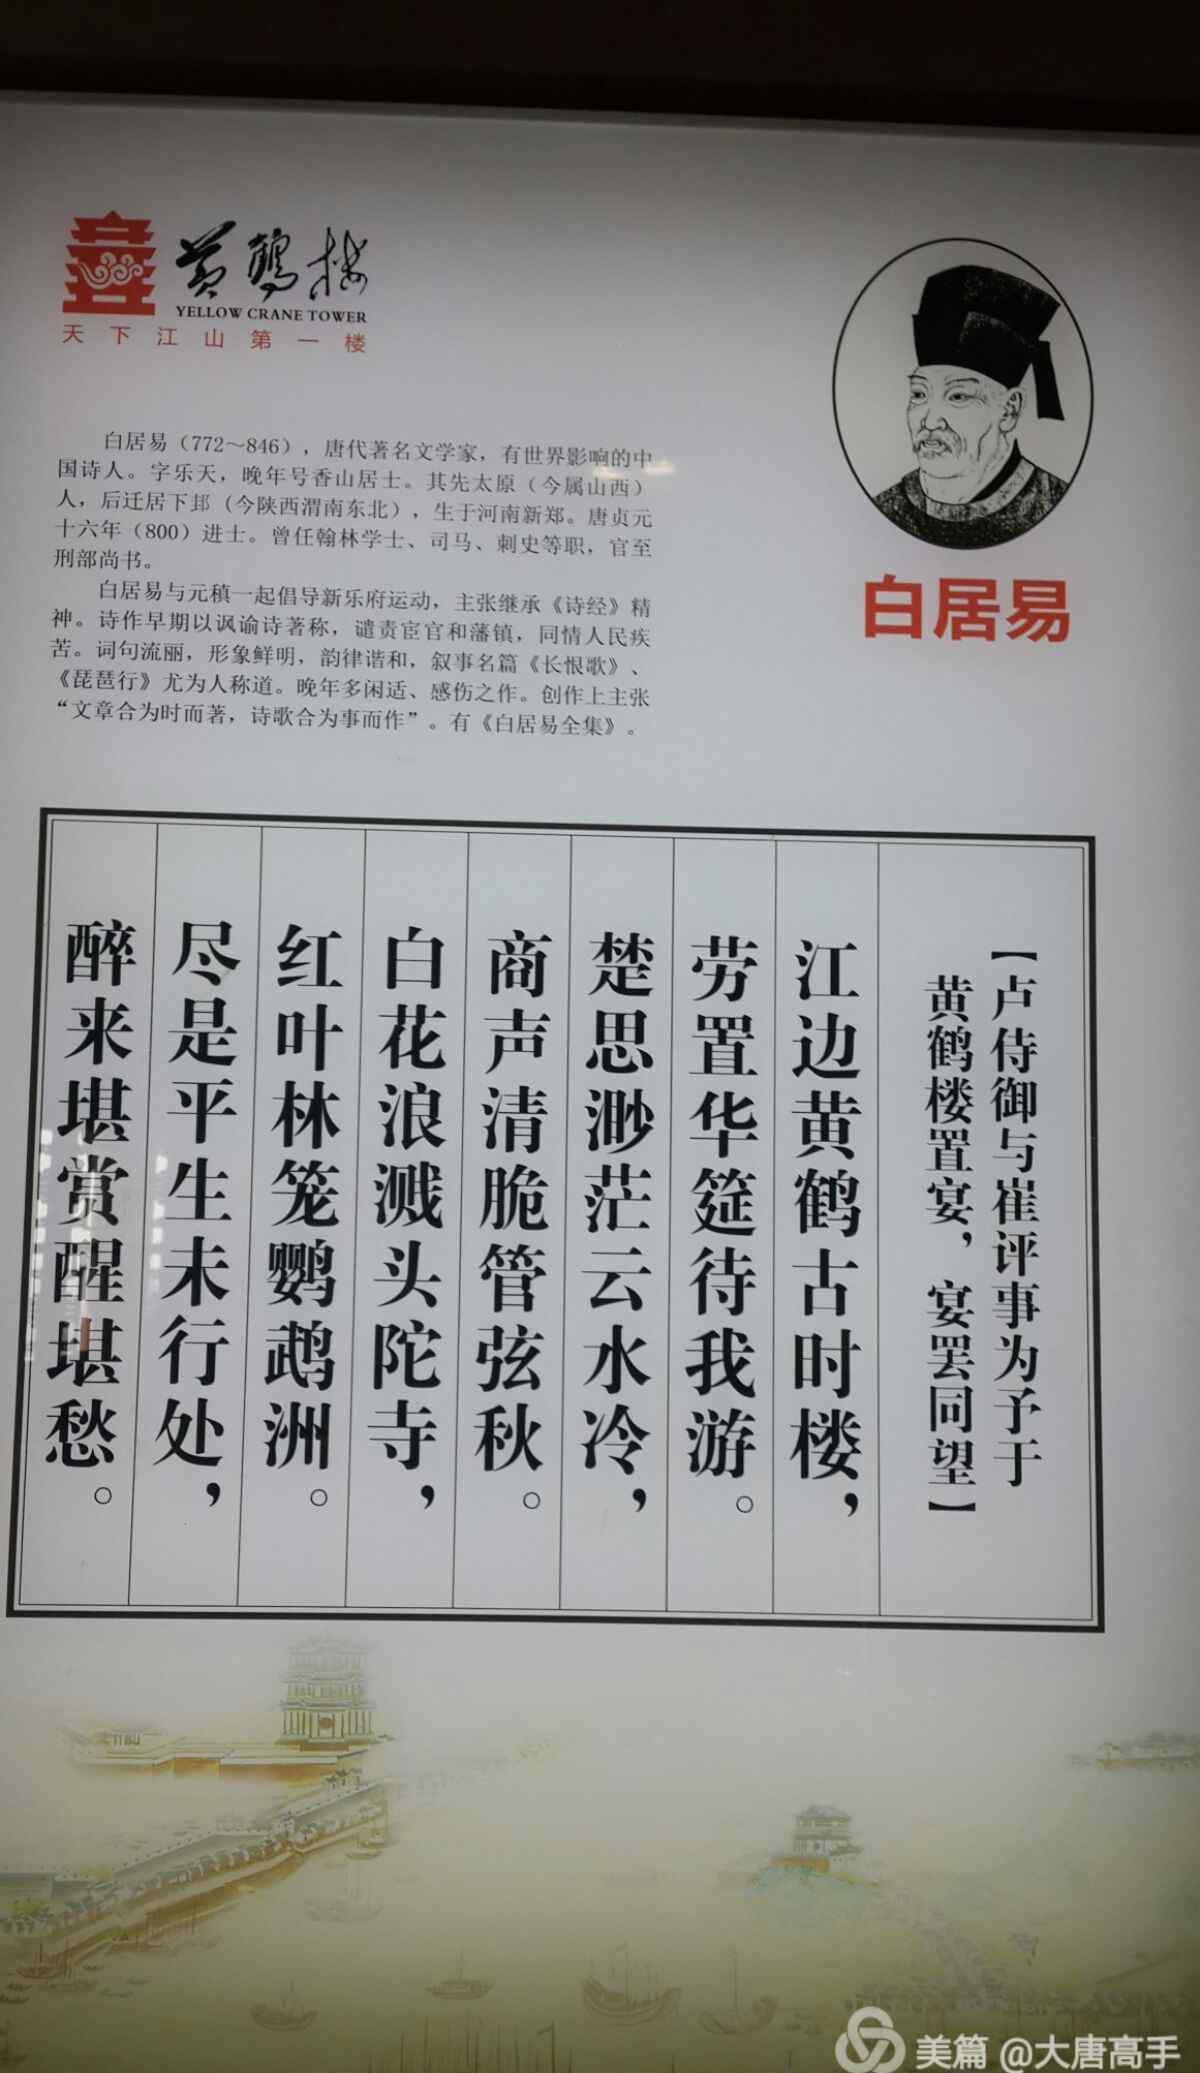 黄鹤楼
YELLOW CRANE TOWER
天下江山第一楼
白居易
白居易（772～846），唐代著名文学家，有世界影响的中
国诗人。字乐天，晚年号香山居士。其先太原（今属山西）
人，后迁居下邽（今陕西渭南东北），生于河南新郑。唐贞元
十六年（800）进士。曾任翰林学士、司马、刺史等职，官至
刑部尚书。
白居易与元稹一起倡导新乐府运动，主张继承《诗经》精
神。诗作早期以讽谕诗著称，谴责宦官和藩镇，同情人民疾
苦。词句流丽，形象鲜明，韵律谐和，叙事名篇《长恨歌》、
《琵琶行》尤为人称道。晚年多闲适、感伤之作。创作上主张
“文章合为时而著，诗歌合为事而作”。有《白居易全集》。
【卢侍御与崔评事为予于
黄鹤楼置宴，宴罢同望】
江边黄鹤古时楼，
劳置华筵待我游。
楚思渺茫云水冷，
商声清脆管弦秋。
白花浪溅头陀寺，
红叶林笼鹦鹉洲。
尽是平生未行处，
醉来堪赏醒堪愁。
美篇 @大唐高手